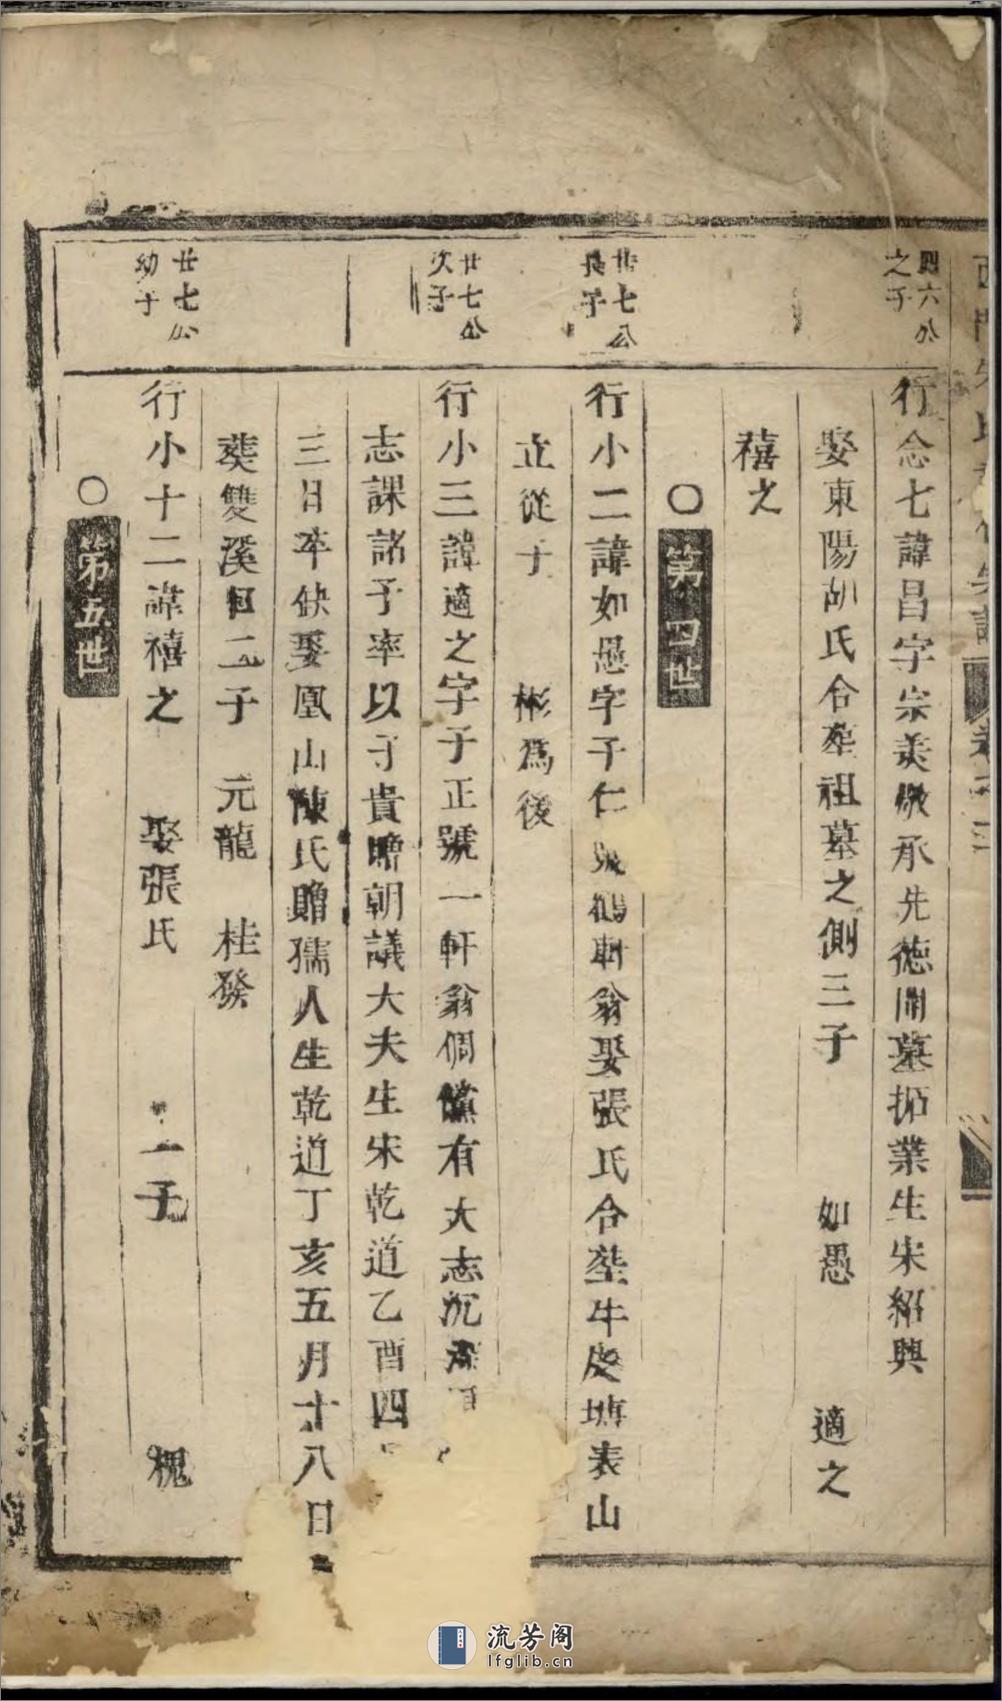 四六公
之子
行念七諱昌字宗美敬承先德開墓拓業生宋紹興
娶東陽胡氏合塟祖墓之側三子 如愚 適之
禧之
○第四世
廿七公
長子
行小二諱如愚字子仁號鶴軒翁娶張氏合塟牛皮塘表山
立從子 彬爲後
廿七公
次子
行小三諱適之字子正號一軒翁倜儻有大志沉
志課諸子率以子貴贈朝議大夫生宋乾道乙酉四
三日卒缺娶鳳山陳氏贈孺人生乾道丁亥五月十八日
葵雙溪 二子 元龍 桂發
廿七公
幼子
行小十二諱禧之 娶張氏 一子 槐
○第五世
流芳阁
lfglib.cn